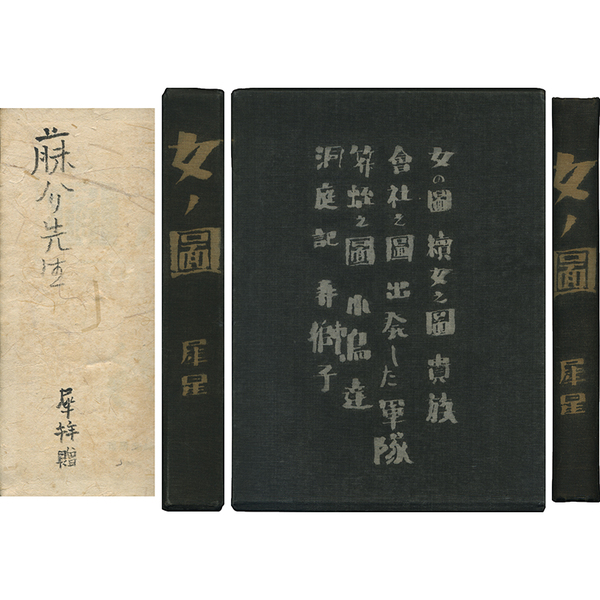 麻介先生
犀星拝贈
女ノ圖
犀星
女の圖 續女之圖 貴族
會社之圖 出発した軍隊
之圖 小鳥達
洞庭記 弄獅子
女ノ圖
犀星